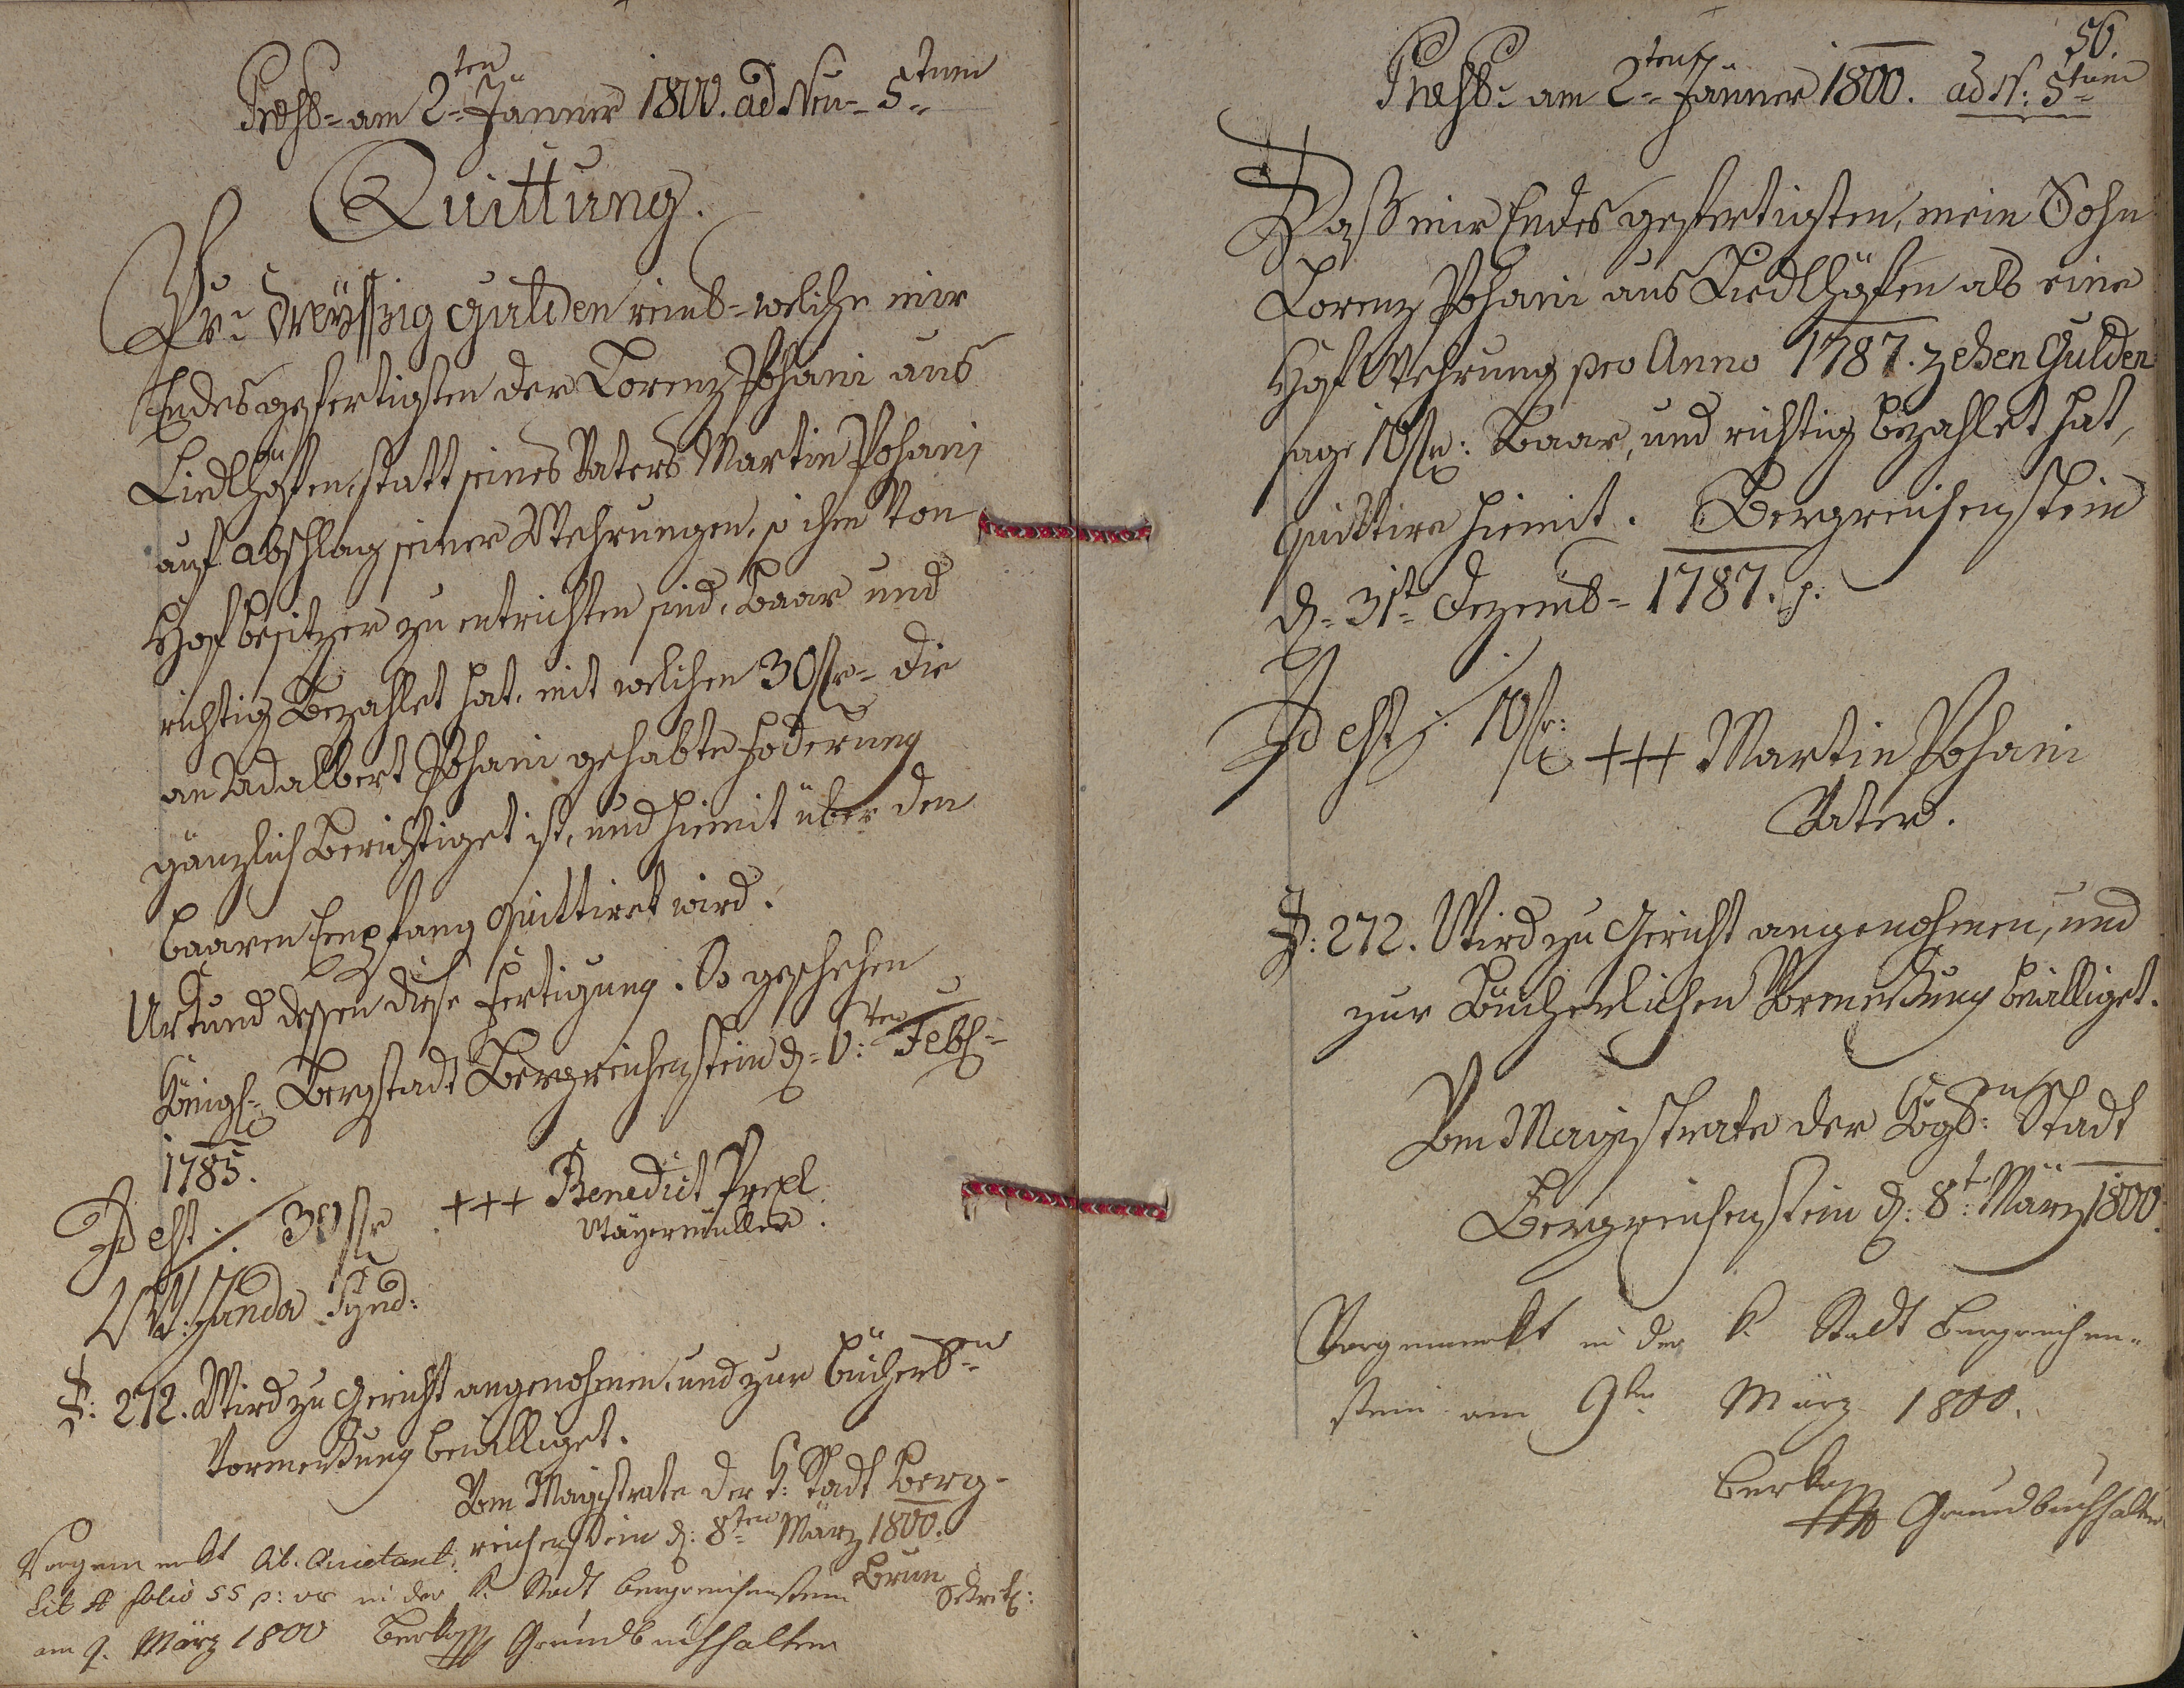 Presb= am 2=ten Jänner 1800. ad Nu= 5=tum
Quittung.
Pr: dreyssig gulden reinl= welche mir
Endesgefertigten der Lorenz Pohani aus
Liedlhöfen, statt seines Vaters Martin Pohani
auf abschlag seiner Wehrungen, so ihm von
Hof besitzer zu entrichten sind, Baar und
richtig Bezahlet hat, mit welchen 30 fl= die
an Adalbert Pohani gehabte Foderung
gänzlich Berichtiget ist, und hiemit über den
baaren Empfang quittiret wird.
Urkund dessen diese Fertigung. So geschehen
Königl= Bergstadt Bergreichenstein d=
Feb=
1785.
Id est. 30 fl +++ Benedict Prexl
Mayermüller.
Janda Synd:
P: 272. Wird zu Gericht angenohmen, und zur Bücherl=n
Vormerkung bewilliget.
Vom Magistrate der k: Stadt Berg-
reichenstein d: 8=ten März 1800.
Brun
Sekret:
Vorgemerkt lib. Quietant:
Lib A folio 55 p: vs in der k. Stadt Bergreichenstein
am 9. März 1800 Berka Grundbuchhalter
56.
Presb= am 2=ten Jänner 1800. ad N: 5=tum
Daß mir Endes gefertigten, mein Sohn
Lorenz Pohani aus Liedlhöfen als eine
Hof Wehrung pro Anno 1787. zehen Gulden
sage 10 fl: Baar, und richtig bezahlet hat,
quittire hiemit. Bergreichenstein
d= 31t= Dezemb= 1787.
Id est: 10 fl: +++ Martin Pohani
Vater.
P: 272. Wird zu Gericht angenohmen, und
zur Bücherlichen Vormerkung bewilliget.
Vom Magistrate der Kögl:n Stadt
Bergreichenstein d: 8t: März 1800.
Vorgemerkt in der k. Stadt Bergreichen=
stein am 9ten März 1800.
Berka Grundbuchhalter